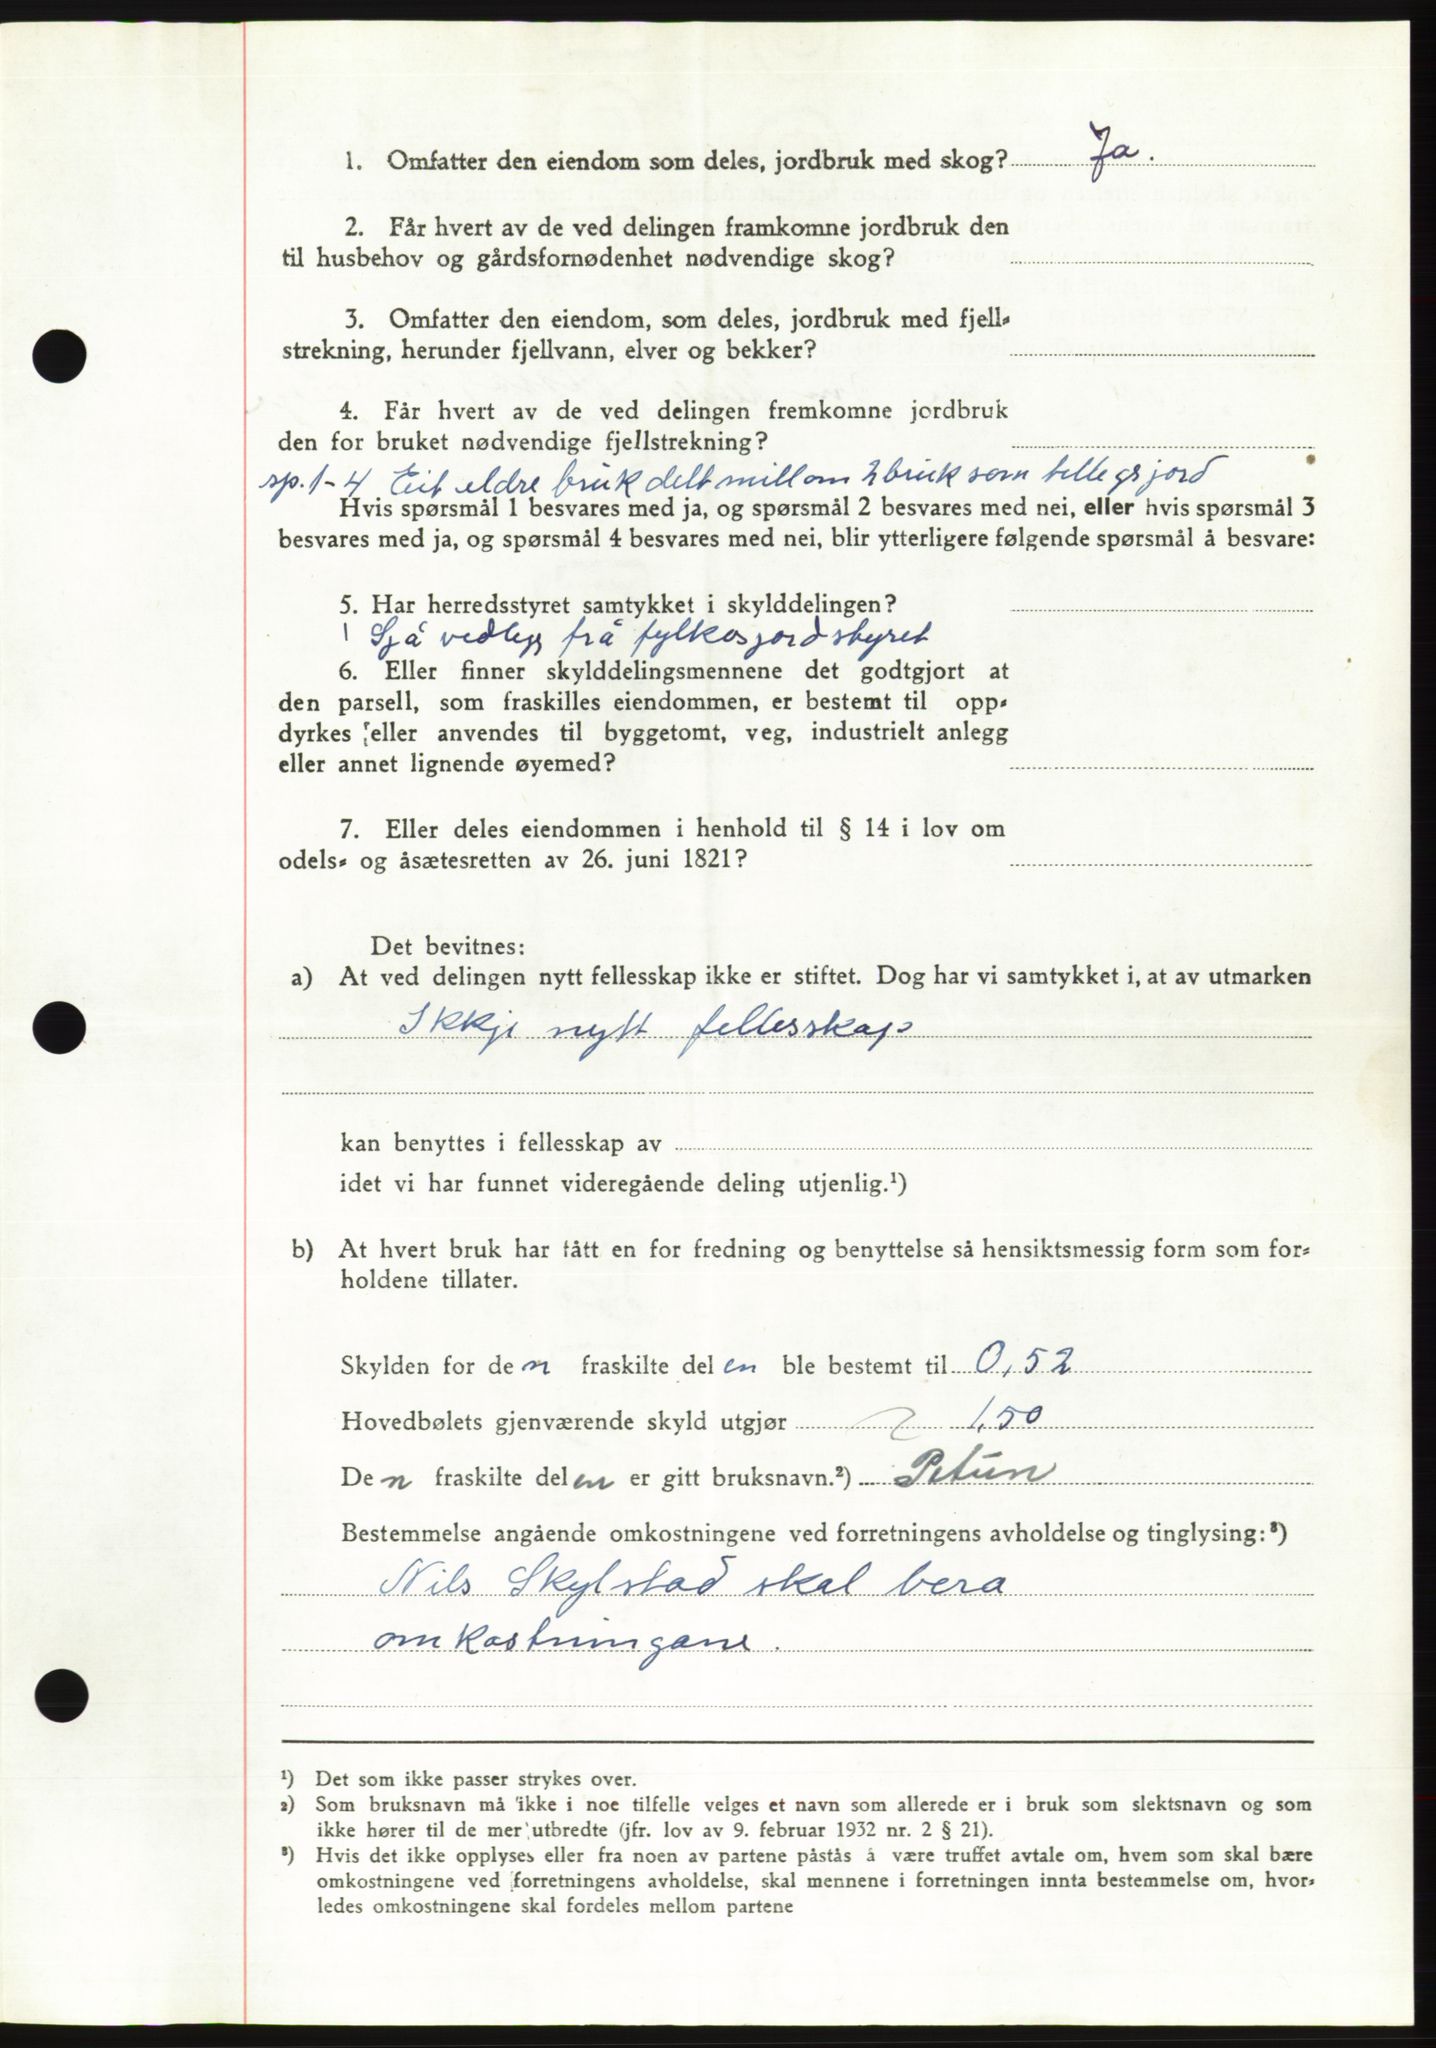 1. Omfatter den eiendom som deles, jordbruk med skog? Ja.
2. Får hvert av de ved delingen framkomne jordbruk den
til husbehov og gårdsfornødenhet nødvendige skog?
3. Omfatter den eiendom, som deles, jordbruk med fjell-
strekning, herunder fjellvann, elver og bekker?
4. Får hvert av de ved delingen fremkomne jordbruk
den for bruket nødvendige fjellstrekning?
sp. 1-4 Eit eldre bruk delt millom 2 bruk som tilleggsjord
Hvis spørsmål 1 besvares med ja, og spørsmål 2 besvares med nei, eller hvis spørsmål 3
besvares med ja, og spørsmål 4 besvares med nei, blir ytterligere følgende spørsmål å besvare:
5. Har herredsstyret samtykket i skylddelingen?
Sjå vedlegg frå fylkesjordstyret
6. Eller finner skylddelingsmennene det godtgjort at
den parsell, som fraskilles eiendommen, er bestemt til opp-
dyrkes eller anvendes til byggetomt, veg, industrielt anlegg
eller annet lignende øyemed?
7. Eller deles eiendommen i henhold til § 14 i lov om
odels- og åsætesretten av 26. juni 1821?
Det bevitnes:
a) At ved delingen nytt fellesskap ikke er stiftet. Dog har vi samtykket i, at av utmarken
Ikkje nytt fellesskap
kan benyttes i fellesskap av
idet vi har funnet videregående deling utjenlig.¹)
b) At hvert bruk har fått en for fredning og benyttelse så hensiktsmessig form som for-
holdene tillater.
Skylden for den fraskilte delen ble bestemt til 0,52
Hovedbølets gjenværende skyld utgjør 1,50
Den fraskilte delen er gitt bruksnavn.²)
Bestemmelse angående omkostningene ved forretningens avholdelse og tinglysing:³)
Nils Skylstad skal bera
omkostningane.
¹) Det som ikke passer strykes over.
²) Som bruksnavn må ikke i noe tilfelle velges et navn som allerede er i bruk som slektsnavn og som
ikke hører til de mer utbredte (jfr. lov av 9. februar 1932 nr. 2 § 21).
³) Hvis det ikke opplyses eller fra noen av partene påstås å være truffet avtale om, hvem som skal bære
omkostningene ved forretningens avholdelse, skal mennene i forretningen innta bestemmelse om, hvor-
ledes omkostningene skal fordeles mellom partene